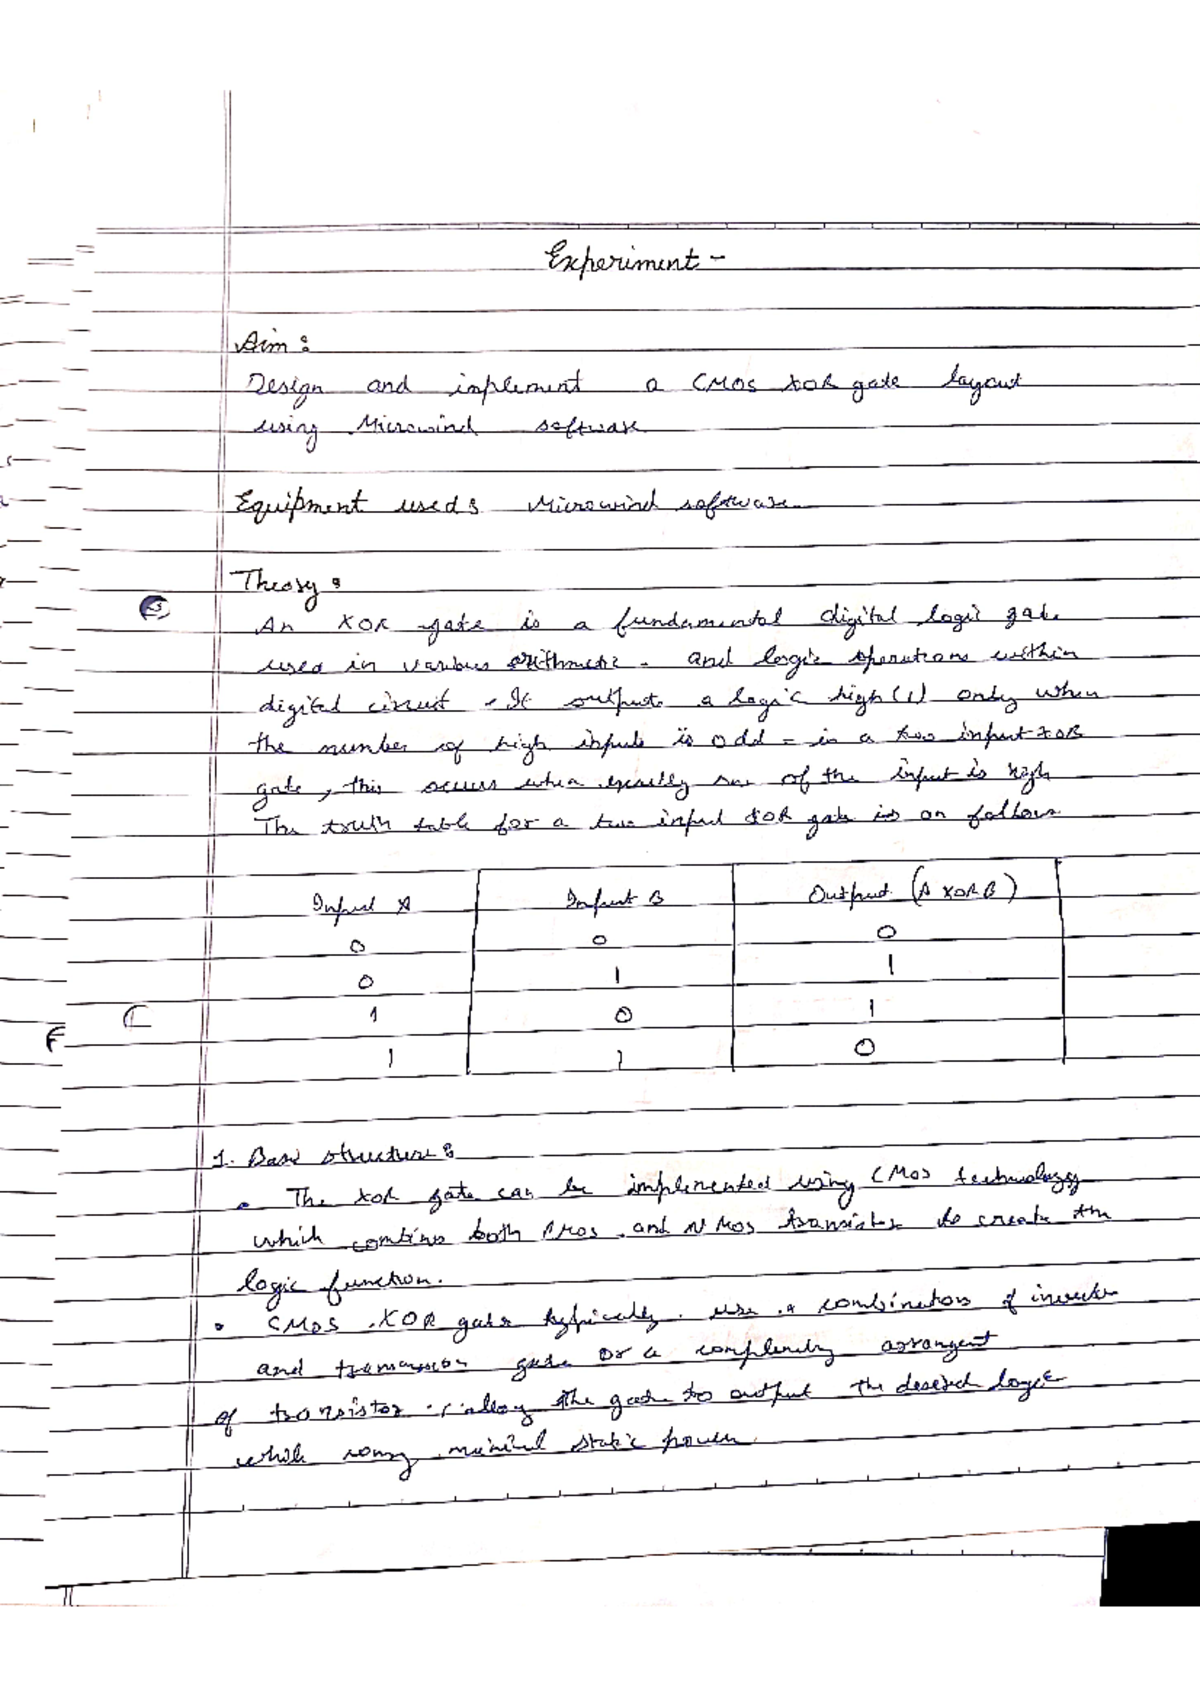 Experiment -
Aim :
Design and implement a CMOS XOR gate layout
using Microwind software
Equipment used : Microwind software
Theory :
An XOR gate is a fundamental digital logic gate
used in various arithmetic - and logic operations within
digital circuit - It outputs a logic high (1) only when
the number of high inputs is odd - in a two input XOR
gate, this occurs when exactly one of the input is high
The truth table for a two input XOR gate is as follows
Input A Input B Output (A XOR B)
0 0 0
0 1 1
1 0 1
1 1 0
C
F
1. Basic structure :
• The XOR gate can be implemented using CMOS technology
which combines both PMOS and NMOS transistor to create the
logic function.
• CMOS XOR gate typically use a combination of inverter
and transmission gate or a arrangent
of transistor the gate to output the desired logic
while minimal static power